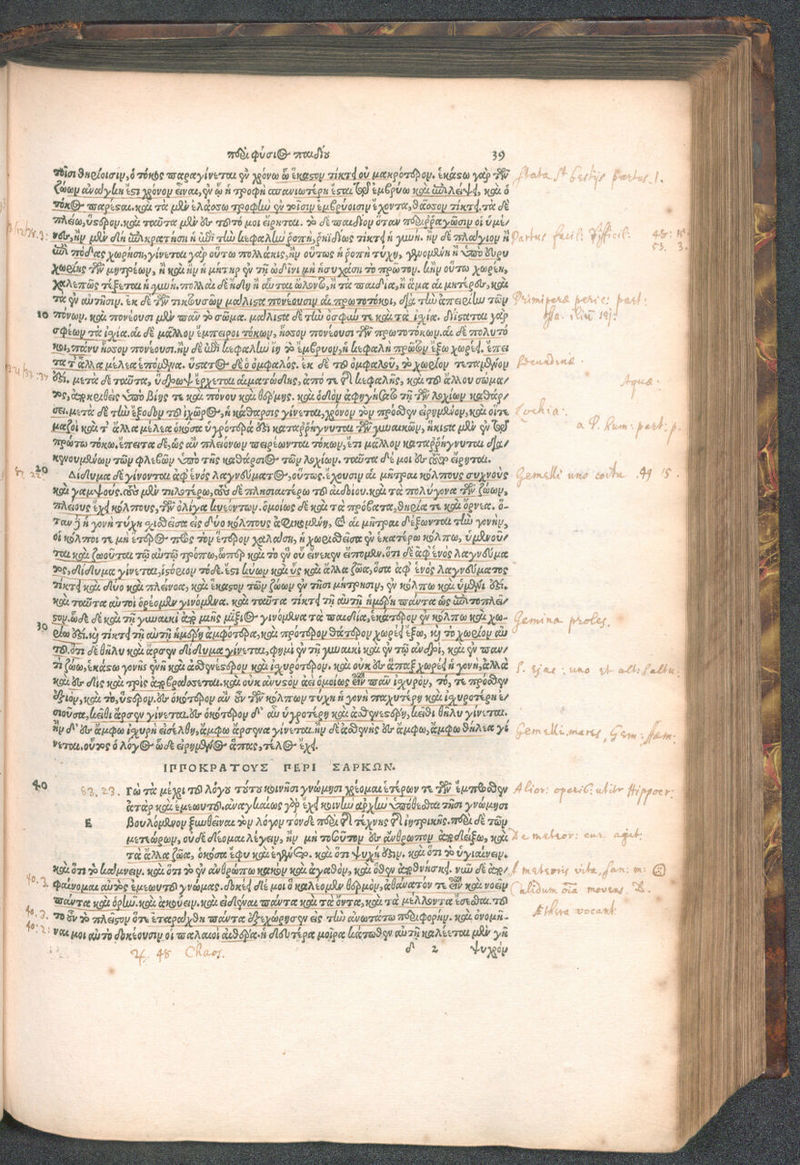 περὶ φύσιος παιδίου 39
τοῖσι θηρίοισιν, ὁ τόκος παραγίνεται ἐν χρόνῳ ᾧ ἕκαστον τίκτει οὐ μακρότερον. ἑκάστῳ γὰρ τῶν
ζώων ἀνάγκη ἐστὶ χρόνον εἶναι, ἐν ᾧ ἡ τροφὴ σπανιωτέρη ἔσται τῷ ἐμβρύῳ καὶ ἐπιλείψει, καὶ ὁ
τόκος παρέσται. καὶ τὰ μὲν ἐλάσσω τροφὴν ἐν τοῖσιν ἐμβρύοισιν ἔχοντα, θᾶσσον τίκτει. τὰ δὲ
πλείω, ὕστερον. καὶ ταῦτα μὲν ἐν τούτῳ μοι εἴρηται. τὸ δὲ παιδίον ὅταν περιρραγῶσιν οἱ ὑμέ-
νες, ἢν μὲν δὴ ἐπικρατήσῃ ἡ ἐπὶ τὴν κεφαλὴν ῥοπὴ, ῥηϊδίως τίκτει ἡ γυνή. ἢν δὲ πλάγιον ἢ
ἐπὶ πόδας χωρήσῃ, γίνεται γὰρ οὕτω πολλάκις, ἢν οὕτως ἡ ῥοπὴ τύχῃ, γενομένη ἢ ὑπὸ εὐρυ
χωρίης τῶν μητρέων, ἢ καὶ ἢν ἡ μήτηρ ἐν τῇ ὠδῖνι μὴ ἡσυχάσῃ τὸ πρῶτον. ἢν οὕτω χωρέῃ,
χαλεπῶς τέξεται ἡ γυνή. πολλαὶ δὲ ἤδη ἢ αὐταὶ ὤλοντο, ἢ τὰ παιδία, ἢ ἅμα αἱ μητέρες, καὶ
τὰ ἐν αὐτῇσιν. ἐκ δὲ τῶν τικτουσῶν μάλιστα πονέουσιν αἱ πρωτοτόκοι, διὰ τὴν ἀπειρίην τῶν
10 πόνων. καὶ πονέουσι μὲν πᾶν τὸ σῶμα. μάλιστα δὲ τὴν ὀσφύν τε καὶ τὰ ἰσχία. διίσταται γάρ
σφεων τὰ ἰσχία. αἱ δὲ μᾶλλον ἔμπειροι τόκων, ἧσσον πονέουσι τῶν πρωτοτόκων. αἱ δὲ πολυτό
κοι, πάνυ ἧσσον πονέουσι. ἢν δὲ ἐπὶ κεφαλὴν ἴῃ τὸ ἔμβρυον, ἡ κεφαλὴ πρῶτον ἔξω χωρέει. ἔπει
τα τ' ἄλλα μέλεα ἑπόμενα. ὕστατος δὲ ὁ ὀμφαλός. ἐκ δὲ τοῦ ὀμφαλοῦ, τὸ χωρίον τεταμένον
ἐστί. μετὰ δὲ ταῦτα, ὕδρωψ ἔρχεται αἱματώδης, ἀπό τε τῆς κεφαλῆς, καὶ τοῦ ἄλλου σώμα-
τος, ἀποκριθεὶς ὑπὸ βίης τε καὶ πόνου καὶ θέρμης. καὶ ὁδὸν ἀφηγήσατο τῇ τῶν λοχίων καθάρ-
σει. μετὰ δὲ τὴν ἔξοδον τοῦ ἰχῶρος, ἡ κάθαρσις γίνεται, χρόνον τὸν πρόσθεν εἰρημένον, καὶ οἵ τε
μαζοὶ καὶ τ' ἄλλα μέλεα ὁκόσα ὑγρότερά ἐστι καταρρήγνυται τῶν γυναικῶν, ἥκιστα μὲν ἐν τῷ
πρώτῳ τόκῳ. ἔπειτα δὲ, ὡς ἂν πλειόνων πειρέωνται τόκων, ἔτι μᾶλλον καταρρήγνυται δια-
κενουμένων τῶν φλεβῶν ὑπὸ τῆς καθάρσιος τῶν λοχίων. ταῦτα δέ μοι ἐς τοῦτο εἴρηται.
20 Δίδυμα δὲ γίνονται ἀφ' ἑνὸς λαγνεύματος, οὕτως. ἔχουσιν αἱ μῆτραι κόλπους συχνοὺς
καὶ γαμψούς. τοὺς μὲν τηλοτέρω, τοὺς δὲ πλησιαιτέρω τοῦ αἰδοίου. καὶ τὰ πολύγονα τῶν ζώων,
πλείους ἔχει κόλπους, τῶν ὀλίγα κυεόντων. ὁμοίως δὲ καὶ τὰ πρόβατα, θηρία τε καὶ ὄρνεα. ὅ-
ταν δὲ ἡ γονὴ τύχῃ σχισθεῖσα εἰς δύο κόλπους ἀφικομένη, καὶ αἱ μῆτραι δέξωνται τὴν γονὴν,
οἱ κόλποι τε μὴ ἕτερος πρὸς τὸν ἕτερον χαλάσῃ, ἡ χωρισθεῖσα ἐν ἑκατέρῳ κόλπῳ, ὑμενοῦ-
ται καὶ ζωοῦται τῷ αὐτῷ τρόπῳ, ὥσπερ καὶ τὸ ἓν οὗ εἵνεκεν εἴπομεν. ὅτι δὲ ἀφ' ἑνὸς λαγνεύμα
τος, δίδυμα γίνεται, ἱστόριον τόδε. ἔστι κύων καὶ ὗς καὶ ἄλλα ζῶα, ὅσα ἀφ' ἑνὸς λαγνεύματος
τίκτει καὶ δύο καὶ πλείονα, καὶ ἕκαστον τῶν ζώων ἐν τῇσι μήτρῃσιν, ἐν κόλπῳ καὶ ὑμένι ἐστί.
καὶ ταῦτα αὐτοὶ ὁρέομεν γινόμενα. καὶ ταῦτα τίκτει τῇ αὐτῇ ἡμέρῃ πάντα ὡς ἐπὶ τοπλεῖ-
στον. ὧδε δὲ καὶ τῇ γυναικὶ ἀπὸ μιῆς μίξιος γινόμενα τὰ παιδία, ἑκάτερον ἐν κόλπῳ καὶ χω-
30 ρίῳ ἐστί. καὶ τίκτει τῇ αὐτῇ ἡμέρῃ ἀμφότερα, καὶ πρότερον θάτερον χωρέει ἔξω, καὶ τὸ χωρίον αὐ
τοῦ. ὅτι δὲ θῆλυ καὶ ἄρσεν δίδυμα γίνεται, φημὶ ἐν τῇ γυναικὶ καὶ ἐν τῷ ἀνδρὶ, καὶ ἐν παν-
τὶ ζώῳ, ἑκάστῳ γονῆς ἐνῇ καὶ ἀσθενέστερον καὶ ἰσχυρότερον. καὶ οὐκ ἐς ἅπαξ χωρέει ἡ γονὴ, ἀλλὰ
καὶ ἐς δὶς καὶ τρὶς ἀποβράσσεται. καὶ οὐκ ἀνυστὸν ἀεὶ ὁμοίως εἶναι πᾶν ἰσχυρὸν, τό, τε πρόσθεν
ἐξιὸν, καὶ τὸ, ὕστερον. ἐς ὁκότερον ἂν ἐν τῶν κόλπων τύχῃ ἡ γονὴ παχυτέρη καὶ ἰσχυροτέρη ἐ-
σιοῦσα, κεῖθι ἄρσην γίνεται. ἐς ὁκότερον δ' αὖ ὑγροτέρη καὶ ἀσθενεστέρη, κεῖθι θῆλυ γίνεται.
ἢν δ' ἐς ἄμφω ἰσχυρὴ εἰσέλθῃ, ἄμφω ἄρσενα γίνεται. ἢν δὲ ἀσθενὴς ἐς ἄμφω, ἄμφω θήλεα γί
νεται. οὗτος ὁ λόγος ὧδε εἰρημένος ἅπας, τέλος ἔχει.
ΙΠΠΟΚΡΑΤΟΥΣ ΠΕΡΙ ΣΑΡΚΩΝ.
40 Ε Γὼ τὰ μέχρι τοῦ λόγου τούτου κοινῇσι γνώμῃσι χρέομαι ἑτέρων τε τῶν ἔμπροσθεν
ἀτὰρ καὶ ἐμεωυτοῦ. ἀναγκαίως γὰρ ἔχει κοινὴν ἀρχὴν ὑποθέσθαι τῇσι γνώμῃσι
βουλόμενον ξυνθεῖναι τὸν λόγον τόνδε περὶ τῆς τέχνης τῆς ἰητρικῆς. περὶ δὲ τῶν
μετεώρων, οὐδὲ δέομαι λέγειν, ἢν μὴ τοσοῦτον ἐς ἄνθρωπον ἀποδείξω, καὶ
τὰ ἄλλα ζῶα, ὁκόσα ἔφυ καὶ ἐγένετο. καὶ ὅτι ψυχή ἐστιν. καὶ ὅτι τὸ ὑγιαίνειν.
καὶ ὅτι τὸ κάμνειν. καὶ ὅτι τὸ ἐν ἀνθρώπῳ κακὸν καὶ ἀγαθόν, καὶ ὅθεν ἀποθνήσκει. νῦν δὲ ἀπο-
φαίνομαι αὐτὸς ἐμεωυτοῦ γνώμας. δοκέει δέ μοι ὃ καλέομεν θερμὸν, ἀθάνατόν τε εἶναι καὶ νοεῖν
πάντα καὶ ὁρῆν. καὶ ἀκούειν. καὶ εἰδέναι πάντα καὶ τὰ ὄντα, καὶ τὰ μέλλοντα ἔσεσθαι. τοῦ
το οὖν τὸ πλεῖστον ὅτε ἐταράχθη πάντα ἐξεχώρησεν εἰς τὴν ἀνωτάτω περιφορήν. καὶ ὀνομῆ-
ναί μοι αὐτὸ δοκέουσιν οἱ παλαιοὶ αἰθέρα. ἡ δευτέρα μοῖρα κάτωθεν αὕτη καλέεται μὲν γῆ
δ 2 ψυχρὸν
Partus facil: difficil:
Primiperæ
Secundinæ.
Aquæ.
Lochia:
Gemelli uno coitu.
Gemina proles.
Gemelli mares, Gem: fæm:
83. 23.
De meteor: cur agit:
Æthera vocant.
48 Chaos.